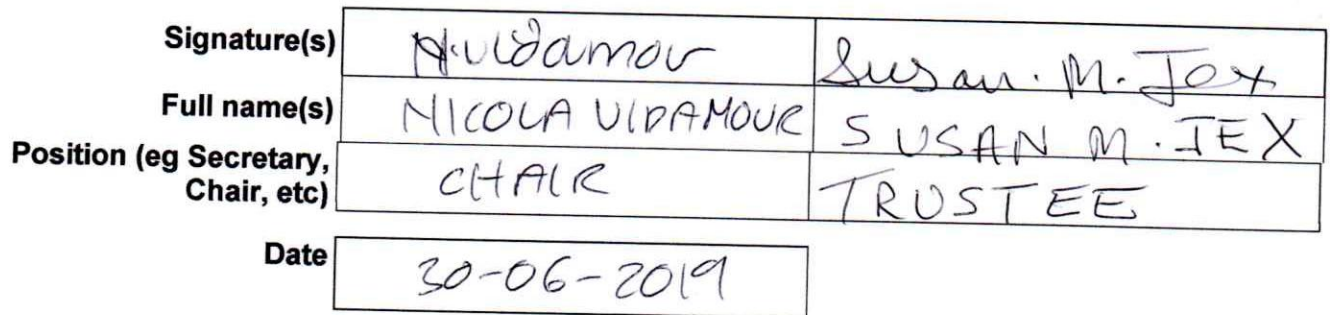 Signature(s) N. Vidamour Susan. M. Jex
Full name(s) NICOLA VIDAMOUR SUSAN M. JEX
Position (eg Secretary, Chair, etc) CHAIR TRUSTEE
Date 30-06-2019